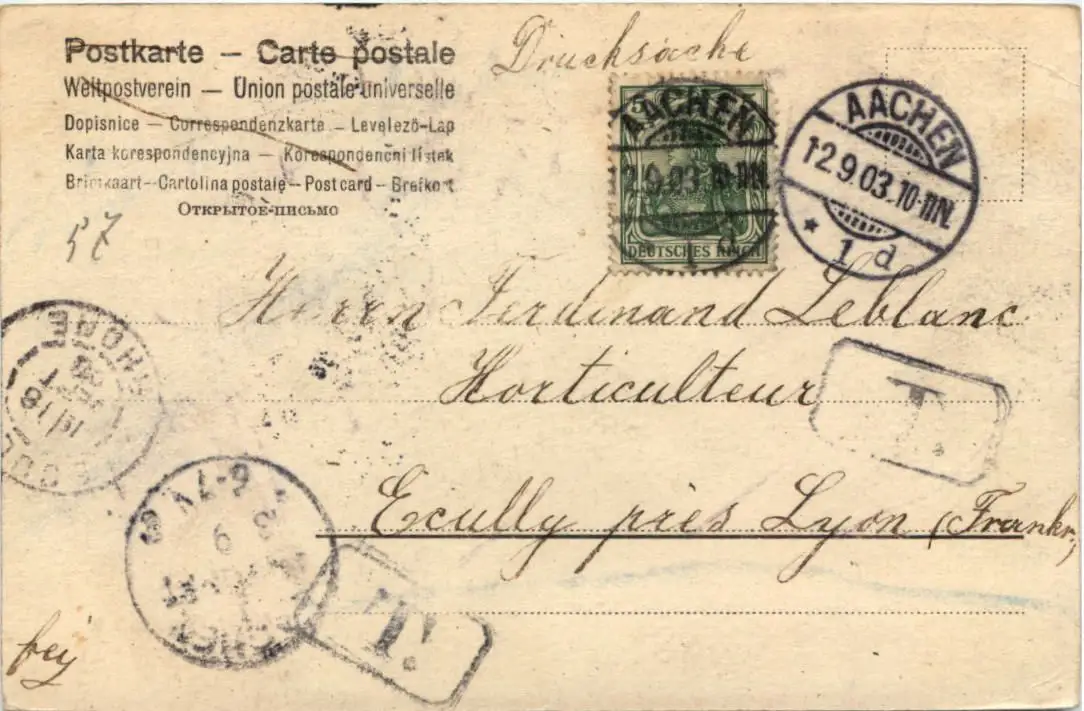 Postkarte – Carte postale
Weltpostverein – Union postale universelle
Dopisnice – Correspondenzkarte – Levelező-Lap
Karta korespondencyjna – Korespondenční lístek
Briefkaart – Cartolina postale – Post card – Brefkort
Открытое-письмо
Drucksache
5 5
AACHEN
12.9.03.10-11N.
1 d
DEUTSCHES REICH
AACHEN
12.9.03.10-11N.
* 1 d
57
Herrn Ferdinand Leblanc
Horticulteur
Ecully près Lyon (Frankr.)
T.
T.
RHONE
6-7